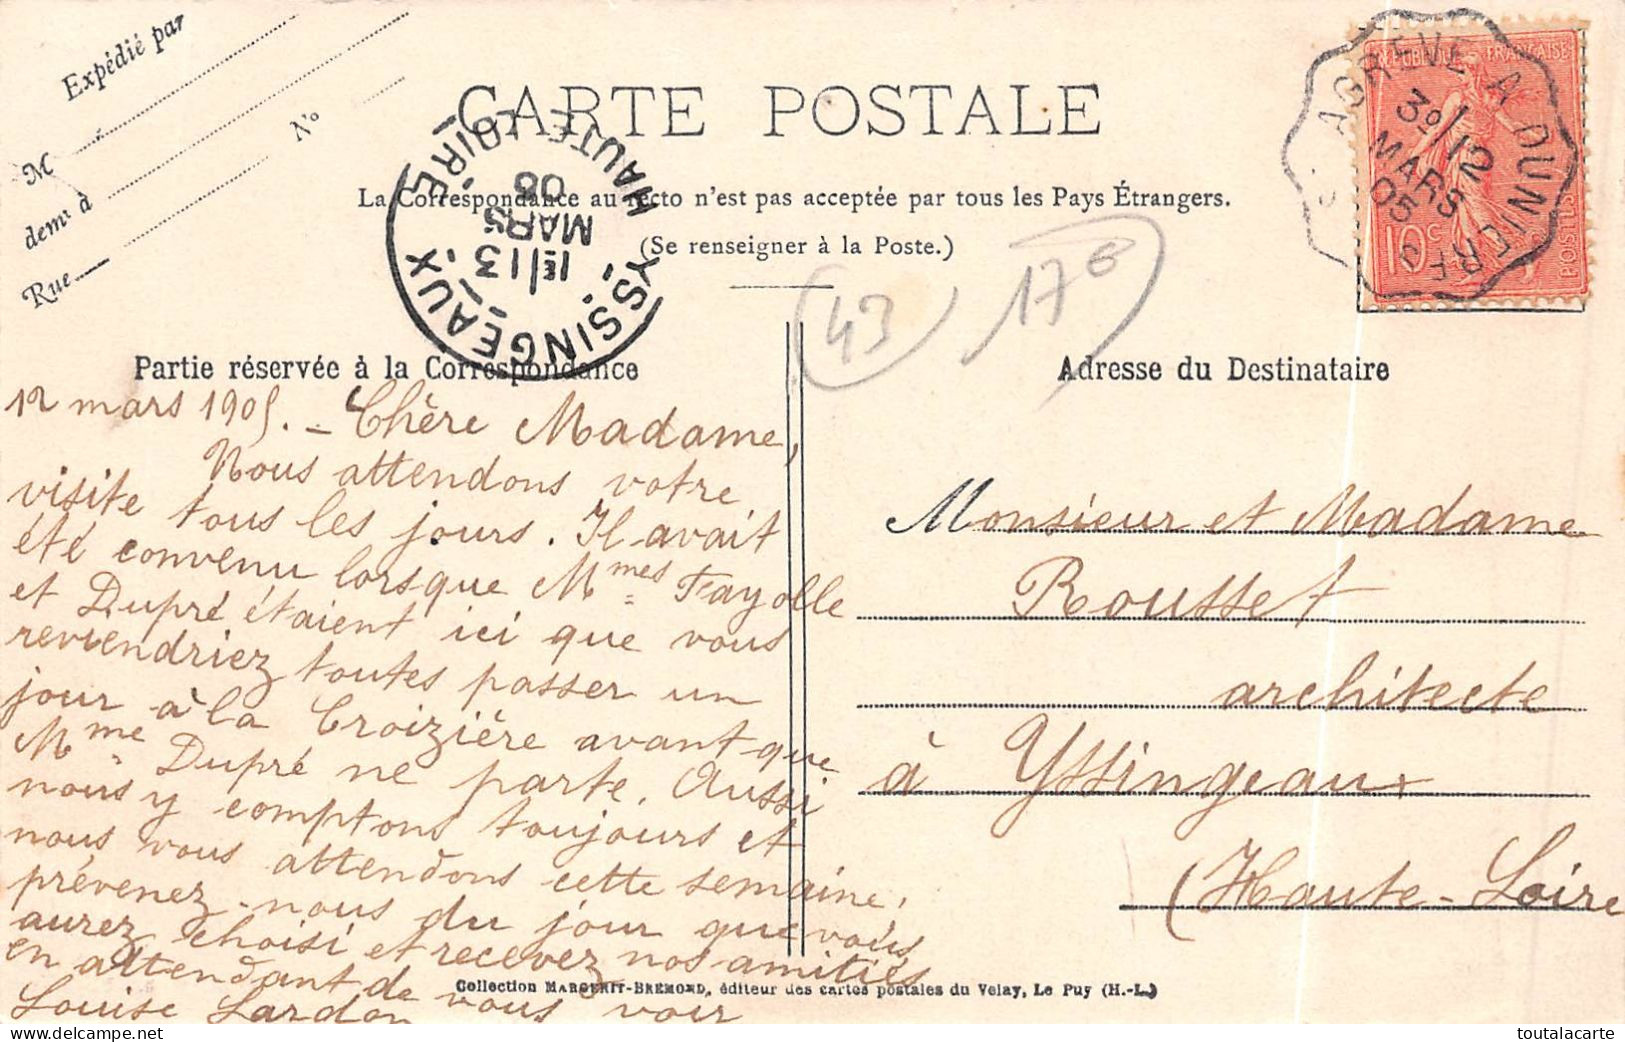 Expédié par
M
demt à
No
Rue
CARTE POSTALE
La Correspondance au recto n'est pas acceptée par tous les Pays Étrangers.
(Se renseigner à la Poste.)
YSSINGEAUX HAUTE LOIRE
1E/13
MARS
05
AGREVE A DUNIERES
3o/12
MARS
05
REPUBLIQUE FRANÇAISE
10c
POSTES
43
17€
Partie réservée à la Correspondance
Adresse du Destinataire
12 mars 1905. - Chère Madame,
Nous attendons votre
visite tous les jours. Il avait
été convenu lorsque Mmes Fayolle
et Dupré étaient ici que vous
reviendriez toutes passer un
jour à la Croizière avant que
Mme Dupré ne parte. Aussi
nous y comptons toujours et
nous vous attendons cette semaine,
prévenez-nous du jour que vous
aurez choisi et recevez nos amitiés
en attendant de vous voir
Louise Lardon
Monsieur et Madame
Rousset
architecte
à Yssingeaux
(Haute-Loire
Collection MARGERIT-BREMOND, éditeur des cartes postales du Velay, Le Puy (H.-L.)
toutalacarte